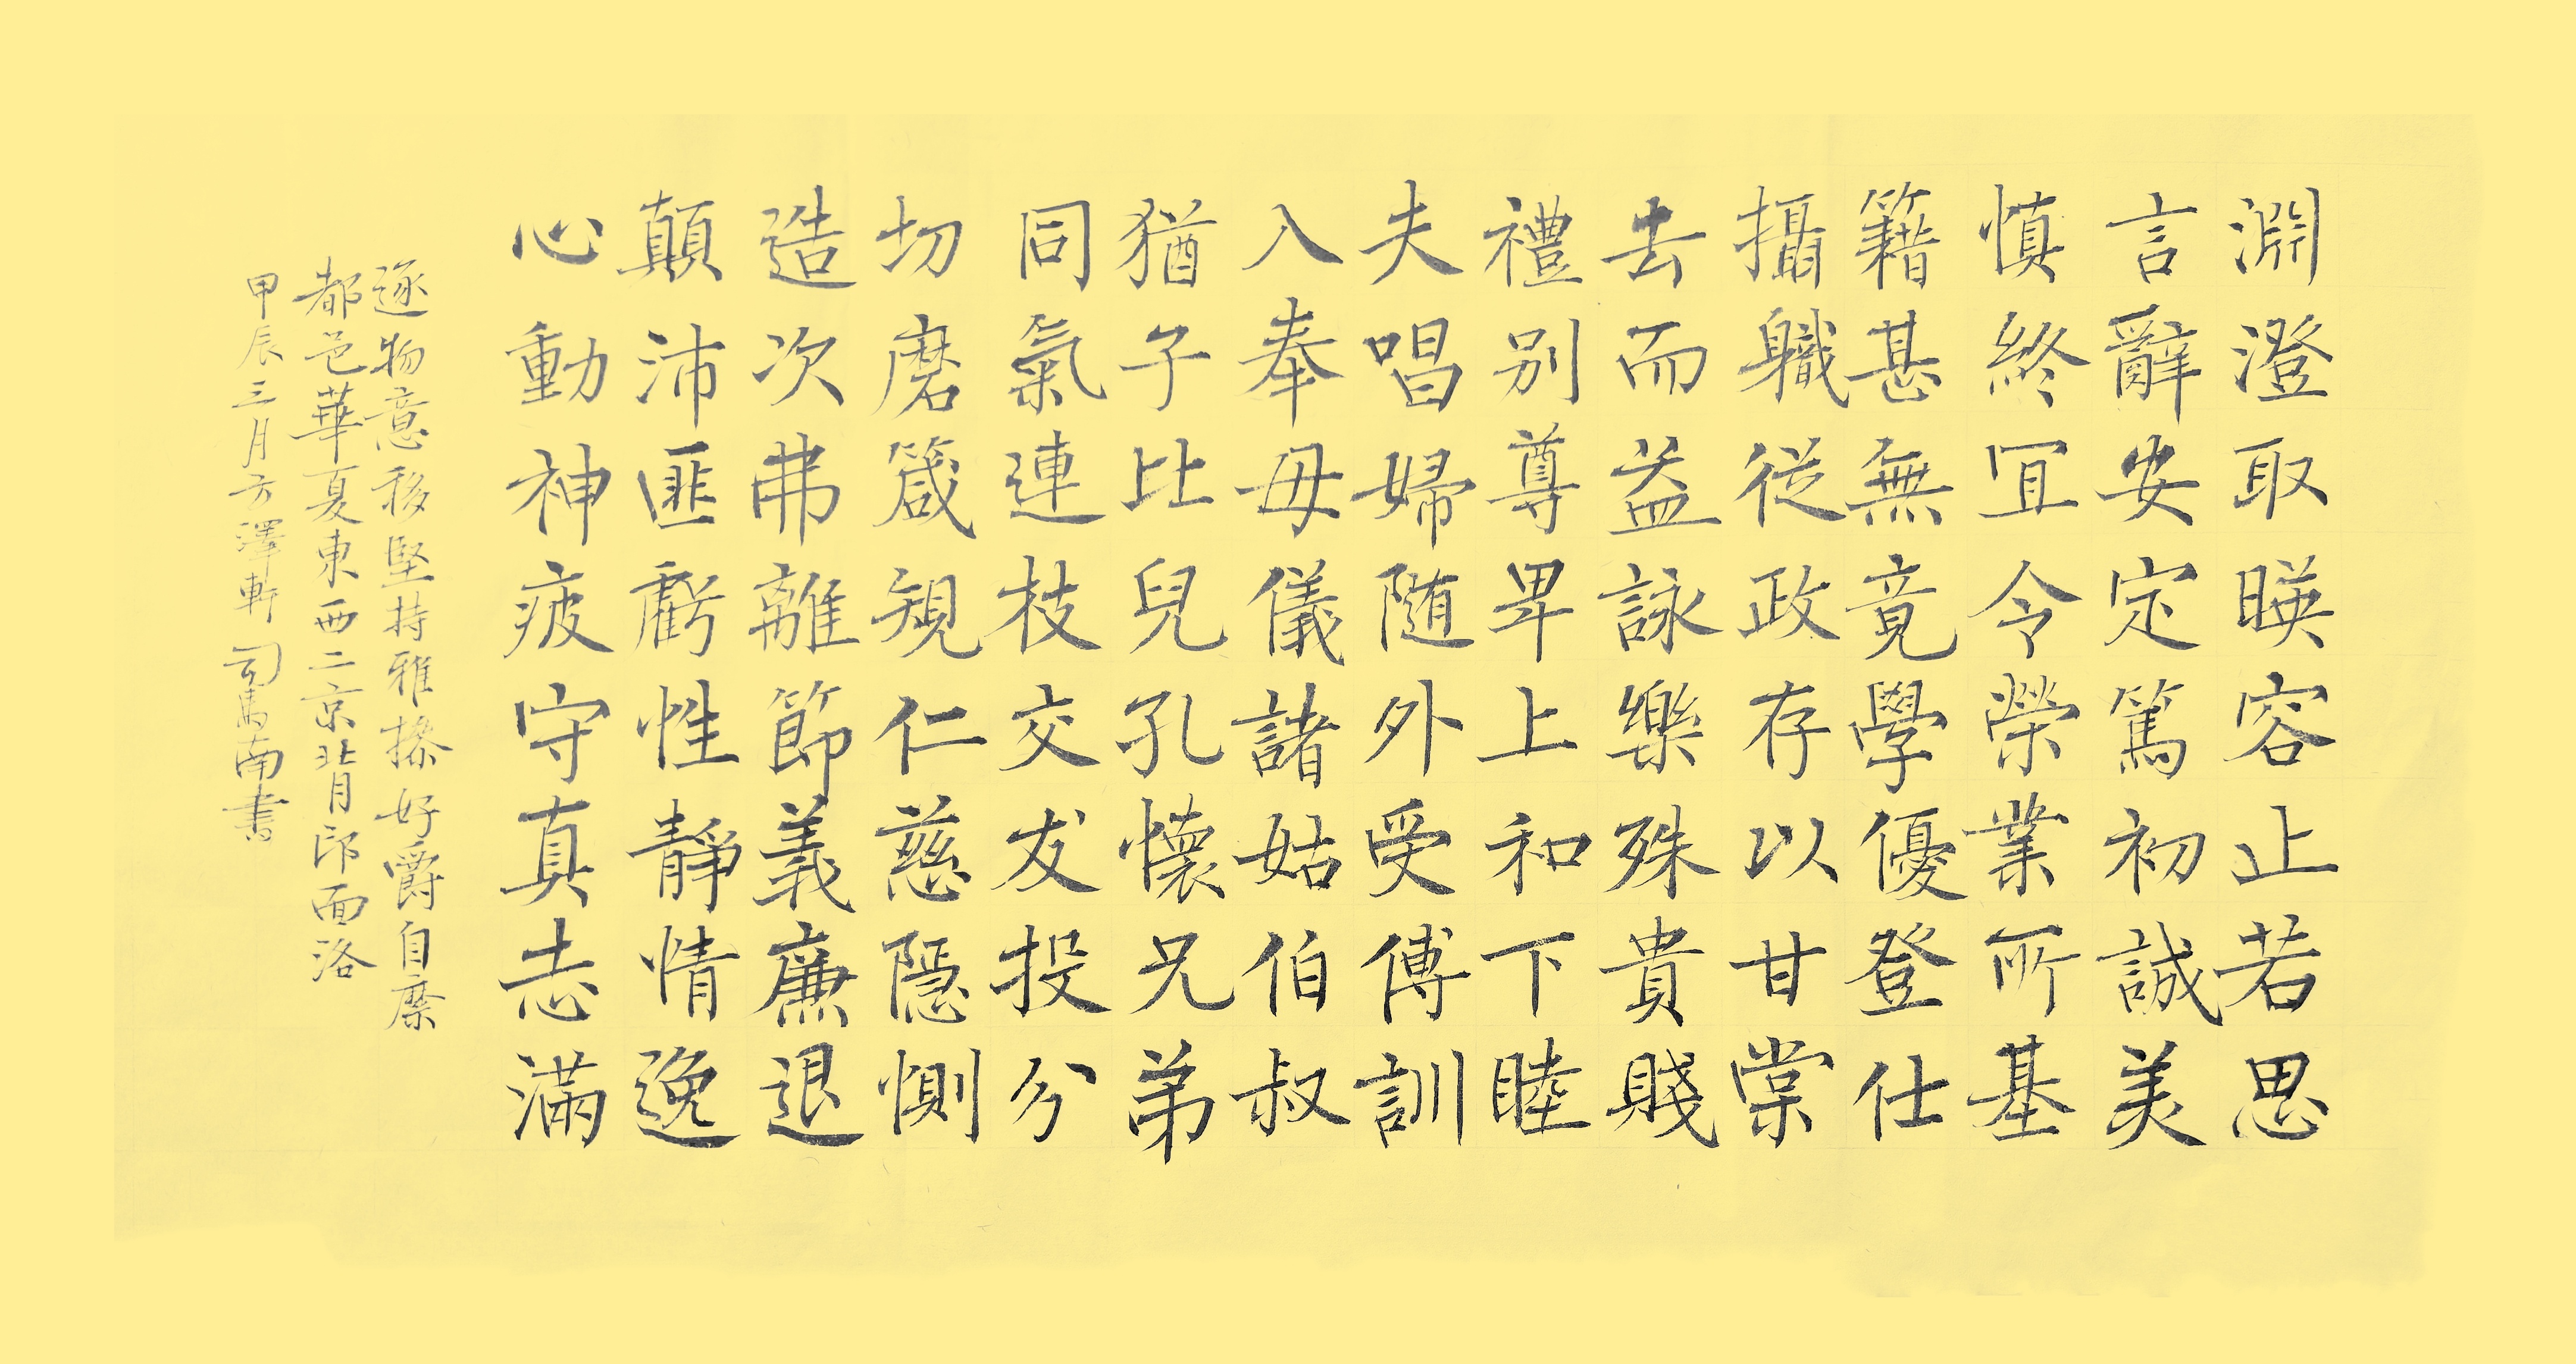 淵澄取暎容止若思
言辭安定篤初誠美
慎終宜令榮業所基
籍甚無竟學優登仕
攝職從政存以甘棠
去而益詠樂殊貴賤
禮別尊卑上和下睦
夫唱婦随外受傅訓
入奉母儀諸姑伯叔
猶子比兒孔懷兄弟
同氣連枝交友投分
切磨箴規仁慈隱惻
造次弗離節義廉退
顛沛匪虧性靜情逸
心動神疲守真志滿
逐物意移堅持雅操好爵自縻
都邑華夏東西二京背邙面洛
甲辰三月方澤軒司馬南書